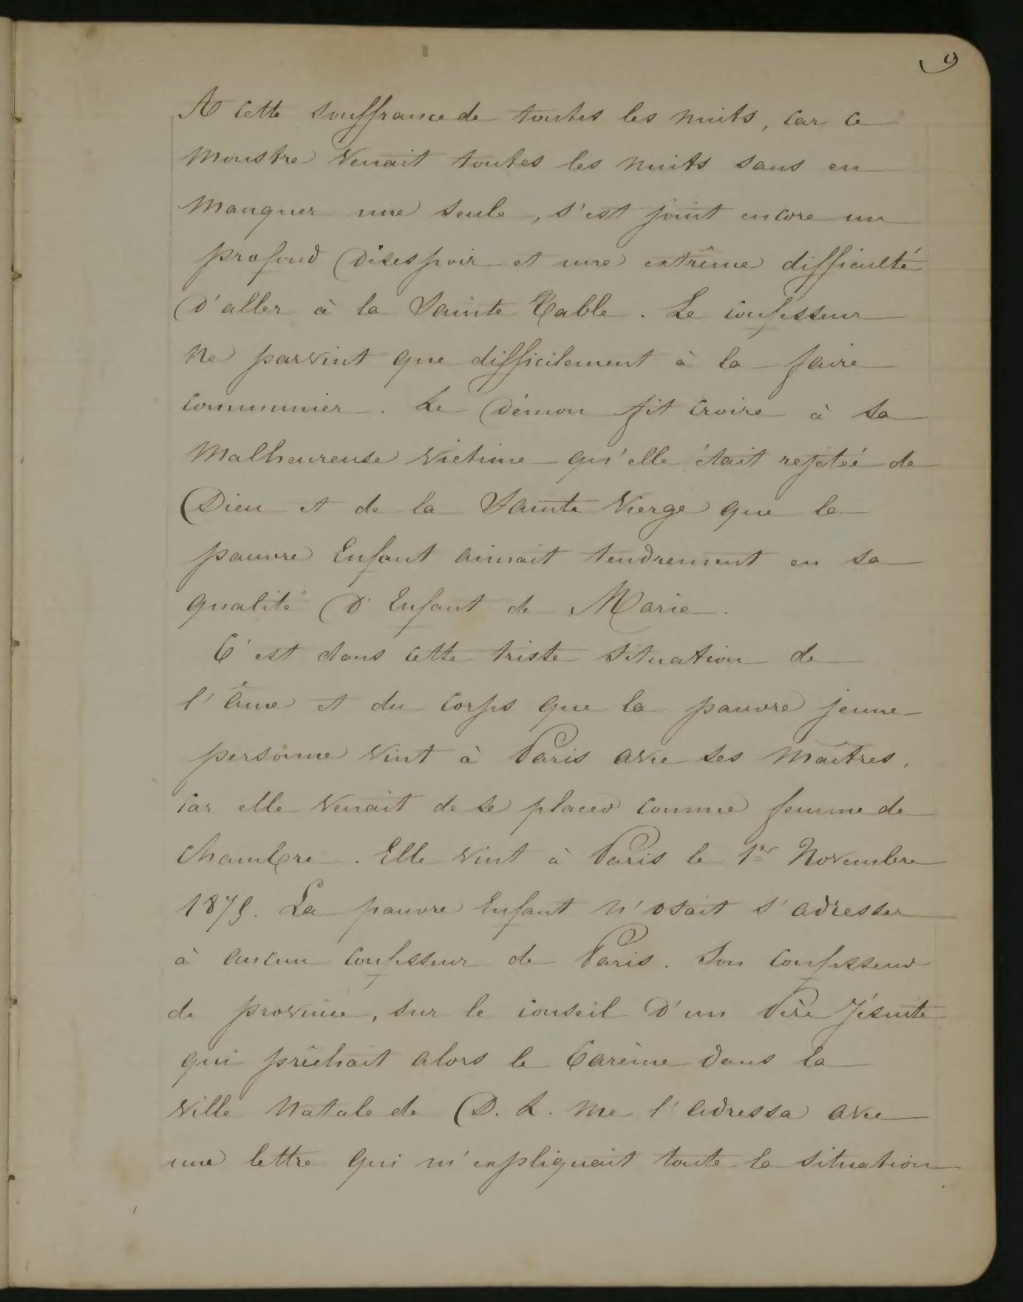 9
A cette souffrance de toutes les nuits, car ce
monstre venait toutes les nuits sans en
manquer une seule, s'est joint encore un
profond désespoir et une extrême difficulté
d'aller à la Sainte Table. Le confesseur
ne parvint que difficilement à la faire
communier. Le Démon fit croire à sa
malheureuse victime qu'elle était rejetée de
Dieu et de la Sainte Vierge que la
pauvre Enfant aimait tendrement en sa
qualité d'Enfant de Marie.
C'est dans cette triste situation de
l'âme et du corps que la pauvre jeune
personne vint à Paris avec ses maîtres,
car elle venait de se placer comme femme de
chambre. Elle vint à Paris le 1er Novembre
1879. La pauvre Enfant n'osait s'adresser
à aucun confesseur de Paris. Son confesseur
de province, sur le conseil d'un Père Jésuite
qui prêchait alors le Carême dans la
ville natale de D. L. me l'adressa avec
une lettre qui m'expliquait toute la situation